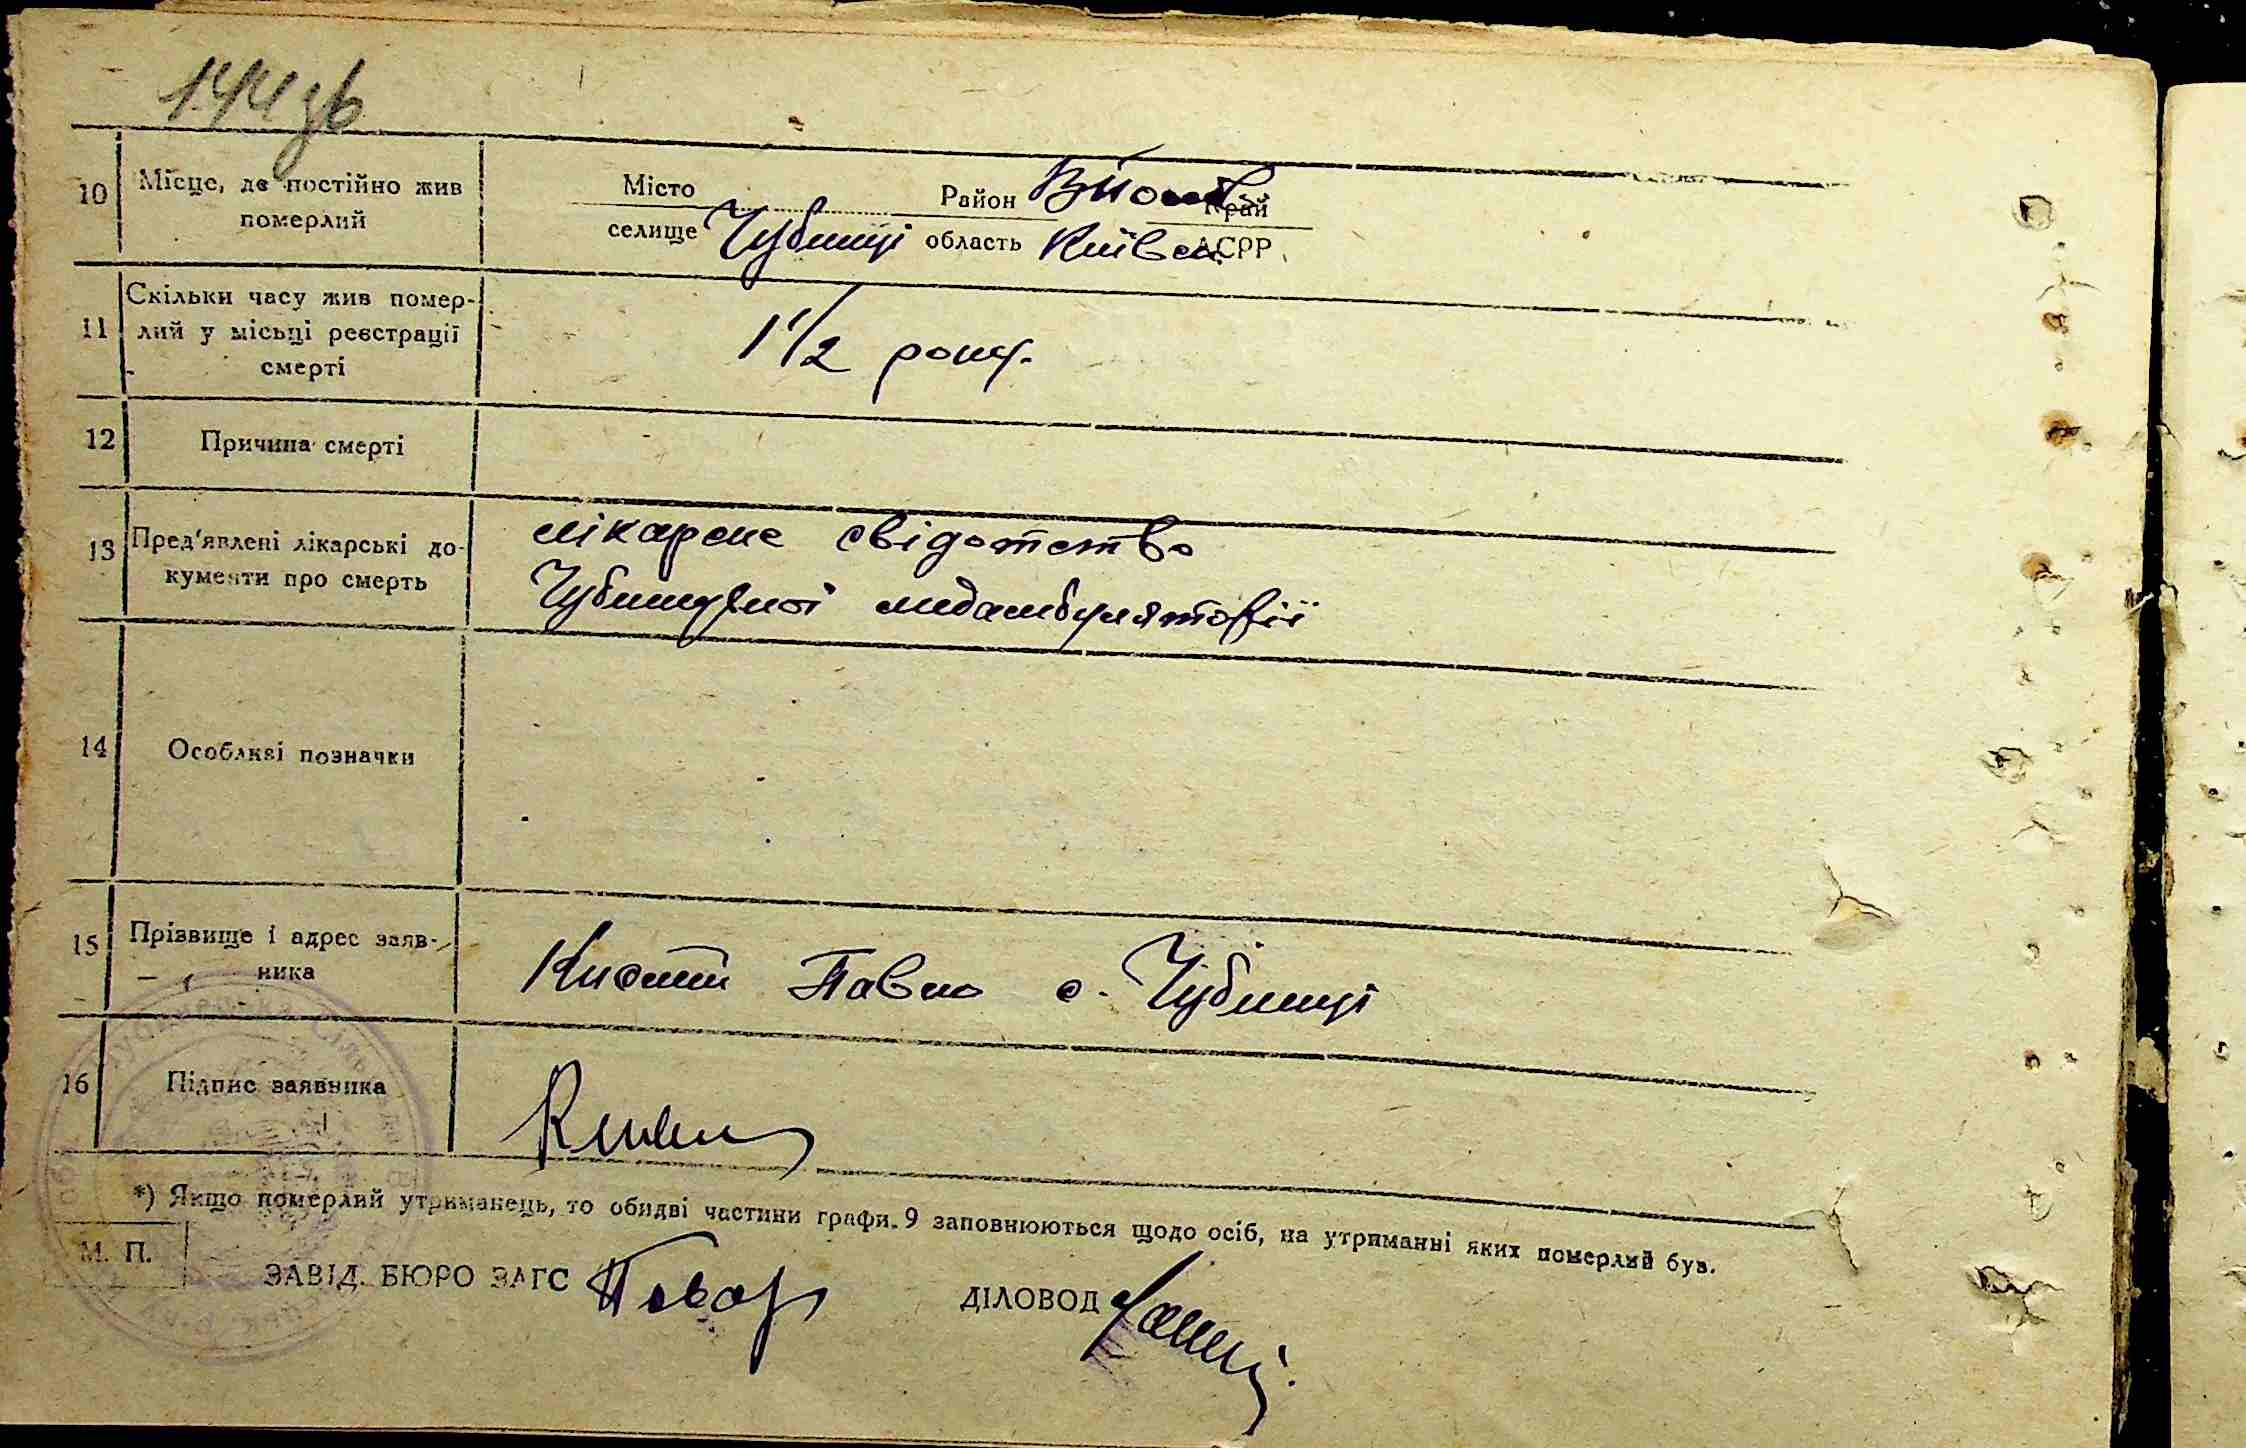 144 зв
10 Місце, де постійно жив померлий
Місто Район В Полов. Край
селище Чубинці область Київськ. АСРР
11 Скільки часу жив помер-
лий у місьці реєстрації
смерті
1 1/2 року.
12 Причина смерті
13 Пред'явлені лікарські до-
кументи про смерть
лікарске свідотство
Чубинецької медамбуляторії
14 Особлкві позначки
15 Прізвище і адрес заяв-
ника
Павло с. Чубинці
16 Підпис заявника
*) Якщо померлий утриманець, то обидві частини графи. 9 заповнюються щодо осіб, на утриманні яких померлий був.
М. П.
ЗАВІД. БЮРО ЗАГС
ДІЛОВОД